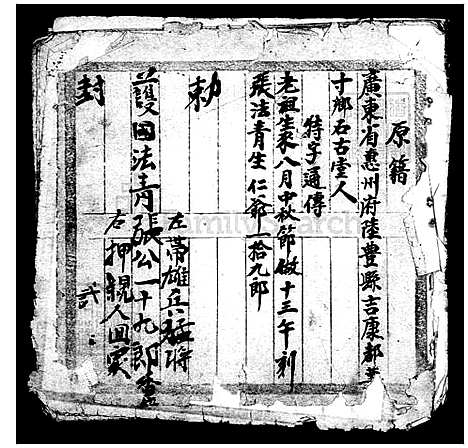 原籍
廣東省惠州府陸豐縣吉康都
寸鄉石古堂人
特字通傳
老祖生來八月中秋節做十三午刻
張法青生仁爺一拾九郎
勅
左帶雄兵猛將
護國法青張公一十九郎
右押親人回宗
封
FamilySearch